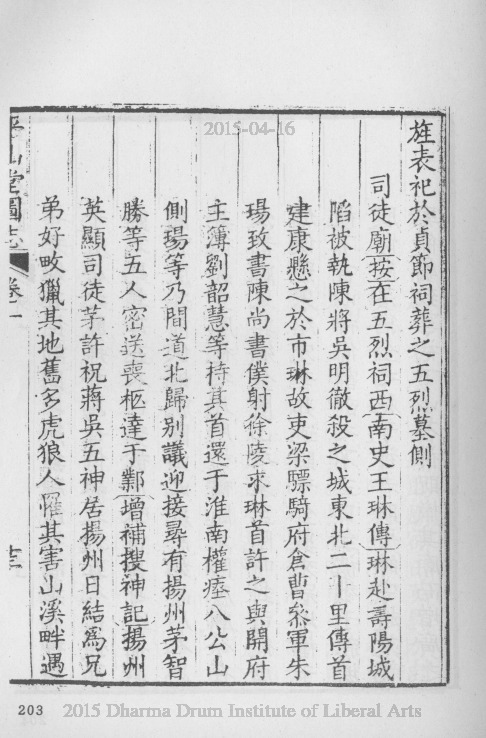 2015-04-16
旌表祀於貞節祠葬之五烈墓側
司徒廟按在五烈祠西南史王琳傳琳赴壽陽城
陷被執陳將吳明徹殺之城東北二十里傳首
建康懸之於市琳故吏梁驃騎府倉曹叅軍朱
瑒致書陳尚書僕射徐陵求琳首許之與開府
主簿劉韶慧等持其首還于淮南權瘞八公山
側瑒等乃間道北歸別議迎接尋有揚州茅智
勝等五人密送喪柩達于鄴增補搜神記揚州
英顯司徒茅許祝蔣吳五神居揚州日結爲兄
弟好畋獵其地舊多虎狼人罹其害山溪畔遇
平山堂圖志
卷一
十三
203
2015 Dharma Drum Institute of Liberal Arts